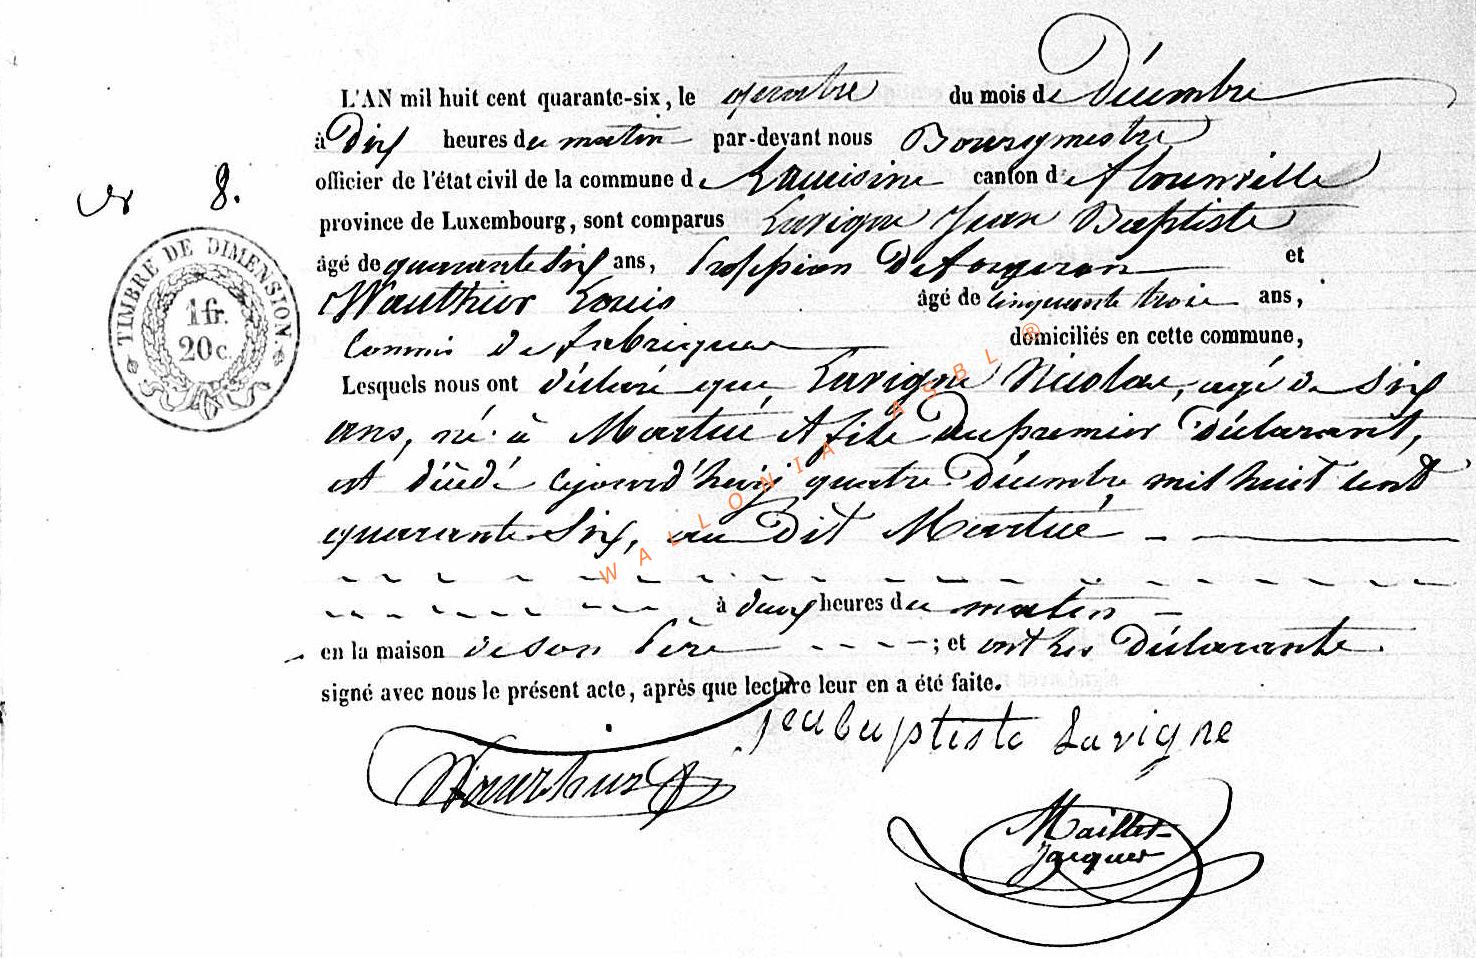 L'AN mil huit cent quarante-six, le quatre du mois de Décembre
à Dix heures du matin par-devant nous Bourgmestre
officier de l'état civil de la commune de Lacuisine canton de Florenville
province de Luxembourg, sont comparus Lavigne Jean Baptiste
âgé de quarante six ans, Profession De forgeron et
Wauthier Louis âgé de cinquante trois ans,
Commis de fabrique domiciliés en cette commune,
Lesquels nous ont déclaré que Lavigne Nicolas, agé de Six
ans, né à Martué et fils Du premier Déclarant,
est décédé cejourd'huij quatre Décembre mil huit cent
quarante Six, au Dit Martué
à deux heures du matin
en la maison de son Père ; et ont les Déclarants
signé avec nous le présent acte, après que lecture leur en a été faite.
N° 8.
TIMBRE DE DIMENSION.
1 fr.
20 c.
WALLONIA ASBL ®
Jeabaptiste Lavigne
Wauthier
Maillet
Jacques